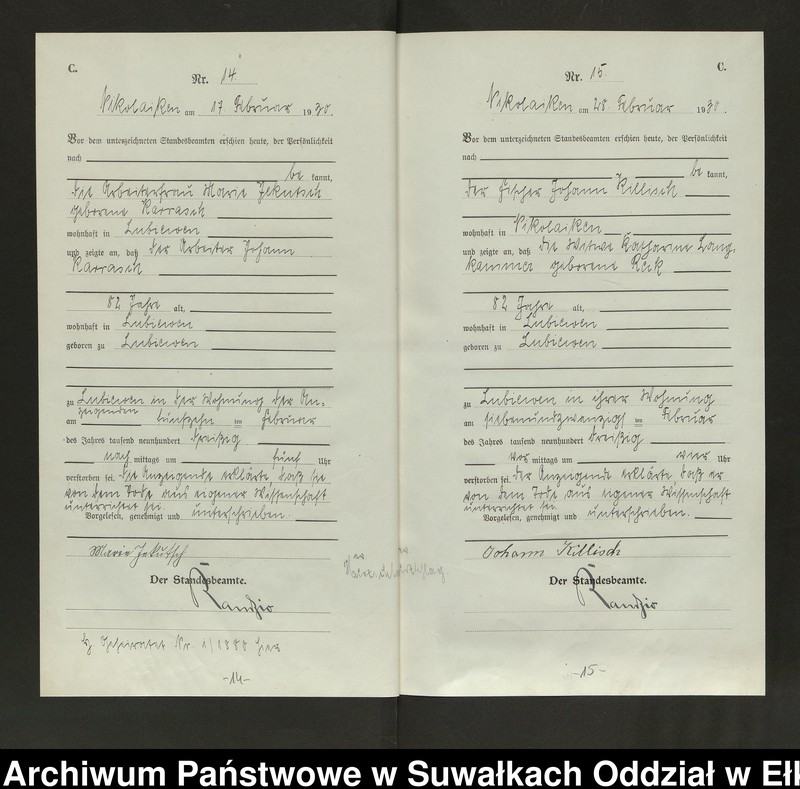 C.
Nr. 14.
Nikolaiken am 17. Februar 1930.
Vor dem unterzeichneten Standesbeamten erschien heute, der Persönlichkeit
nach
be kannt,
die Arbeiterfrau Marie Jekutsch
geborene Karrasch
wohnhaft in Lubiewen
und zeigte an, daß der Arbeiter Johann
Karrasch
82 Jahre alt,
wohnhaft in Lubiewen
geboren zu Lubiewen
zu Lubiewen in der Wohnung der An-
zeigenden
am fünfzehn im Februar
des Jahres tausend neunhundert dreißig
nach mittags um fünf Uhr
verstorben sei. Die Anzeigende erklärte, daß sie
von dem Tode aus eigener Wissenschaft
unterrichtet sei.
Vorgelesen, genehmigt und unterschrieben.
Marie Jekutsch
Der Standesbeamte.
Geheiratet Nr. 1/1880 hier
-14-
C.
Nr. 15.
Nikolaiken am 28. Februar 1930.
Vor dem unterzeichneten Standesbeamten erschien heute, der Persönlichkeit
nach
be kannt,
der Fischer Johann Killisch
wohnhaft in Nikolaiken
und zeigte an, daß die Witwe Katharine Lang-
kammer geborene
82 Jahre alt,
wohnhaft in Lubiewen
geboren zu Lubiewen
zu Lubiewen in ihrer Wohnung
am siebenundzwanzigst im Februar
des Jahres tausend neunhundert dreißig
vor mittags um vier Uhr
verstorben sei. Der Anzeigende erklärte, daß er
von dem Tode aus eigener Wissenschaft
unterrichtet sei.
Vorgelesen, genehmigt und unterschrieben.
Johann Killisch
Der Standesbeamte.
-15-
Archiwum Państwowe w Suwałkach Oddział w Ełk